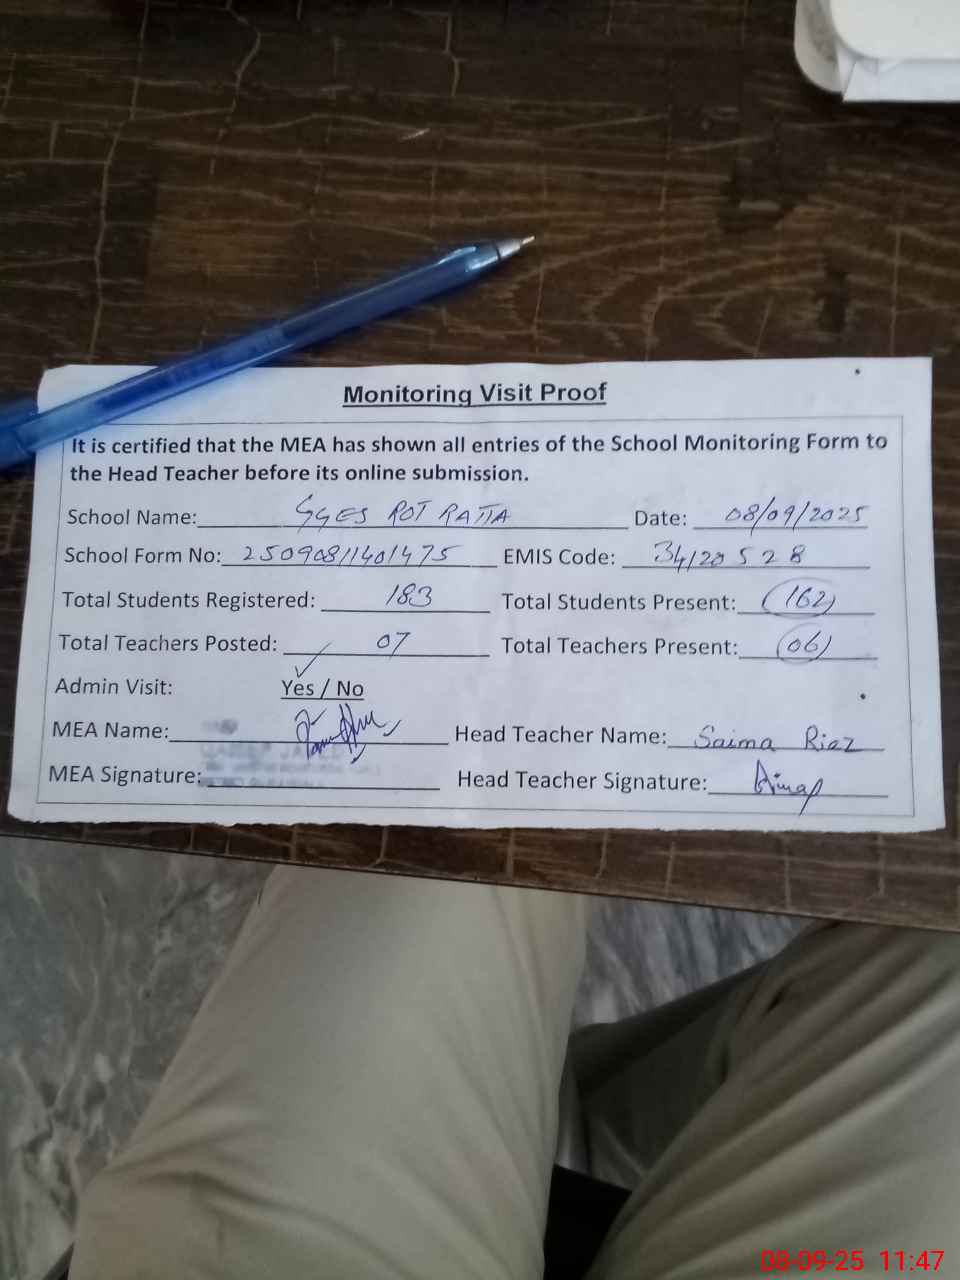 Monitoring Visit Proof
It is certified that the MEA has shown all entries of the School Monitoring Form to
the Head Teacher before its online submission.
School Name: GGES ROT RATTA Date: 08/09/2025
School Form No: 2509081401475 EMIS Code: 34120528
Total Students Registered: 183 Total Students Present: 162
Total Teachers Posted: 07 Total Teachers Present: 06
Admin Visit: Yes / No
MEA Name: Head Teacher Name: Saima Riaz
MEA Signature: Head Teacher Signature:
08-09-25 11:47